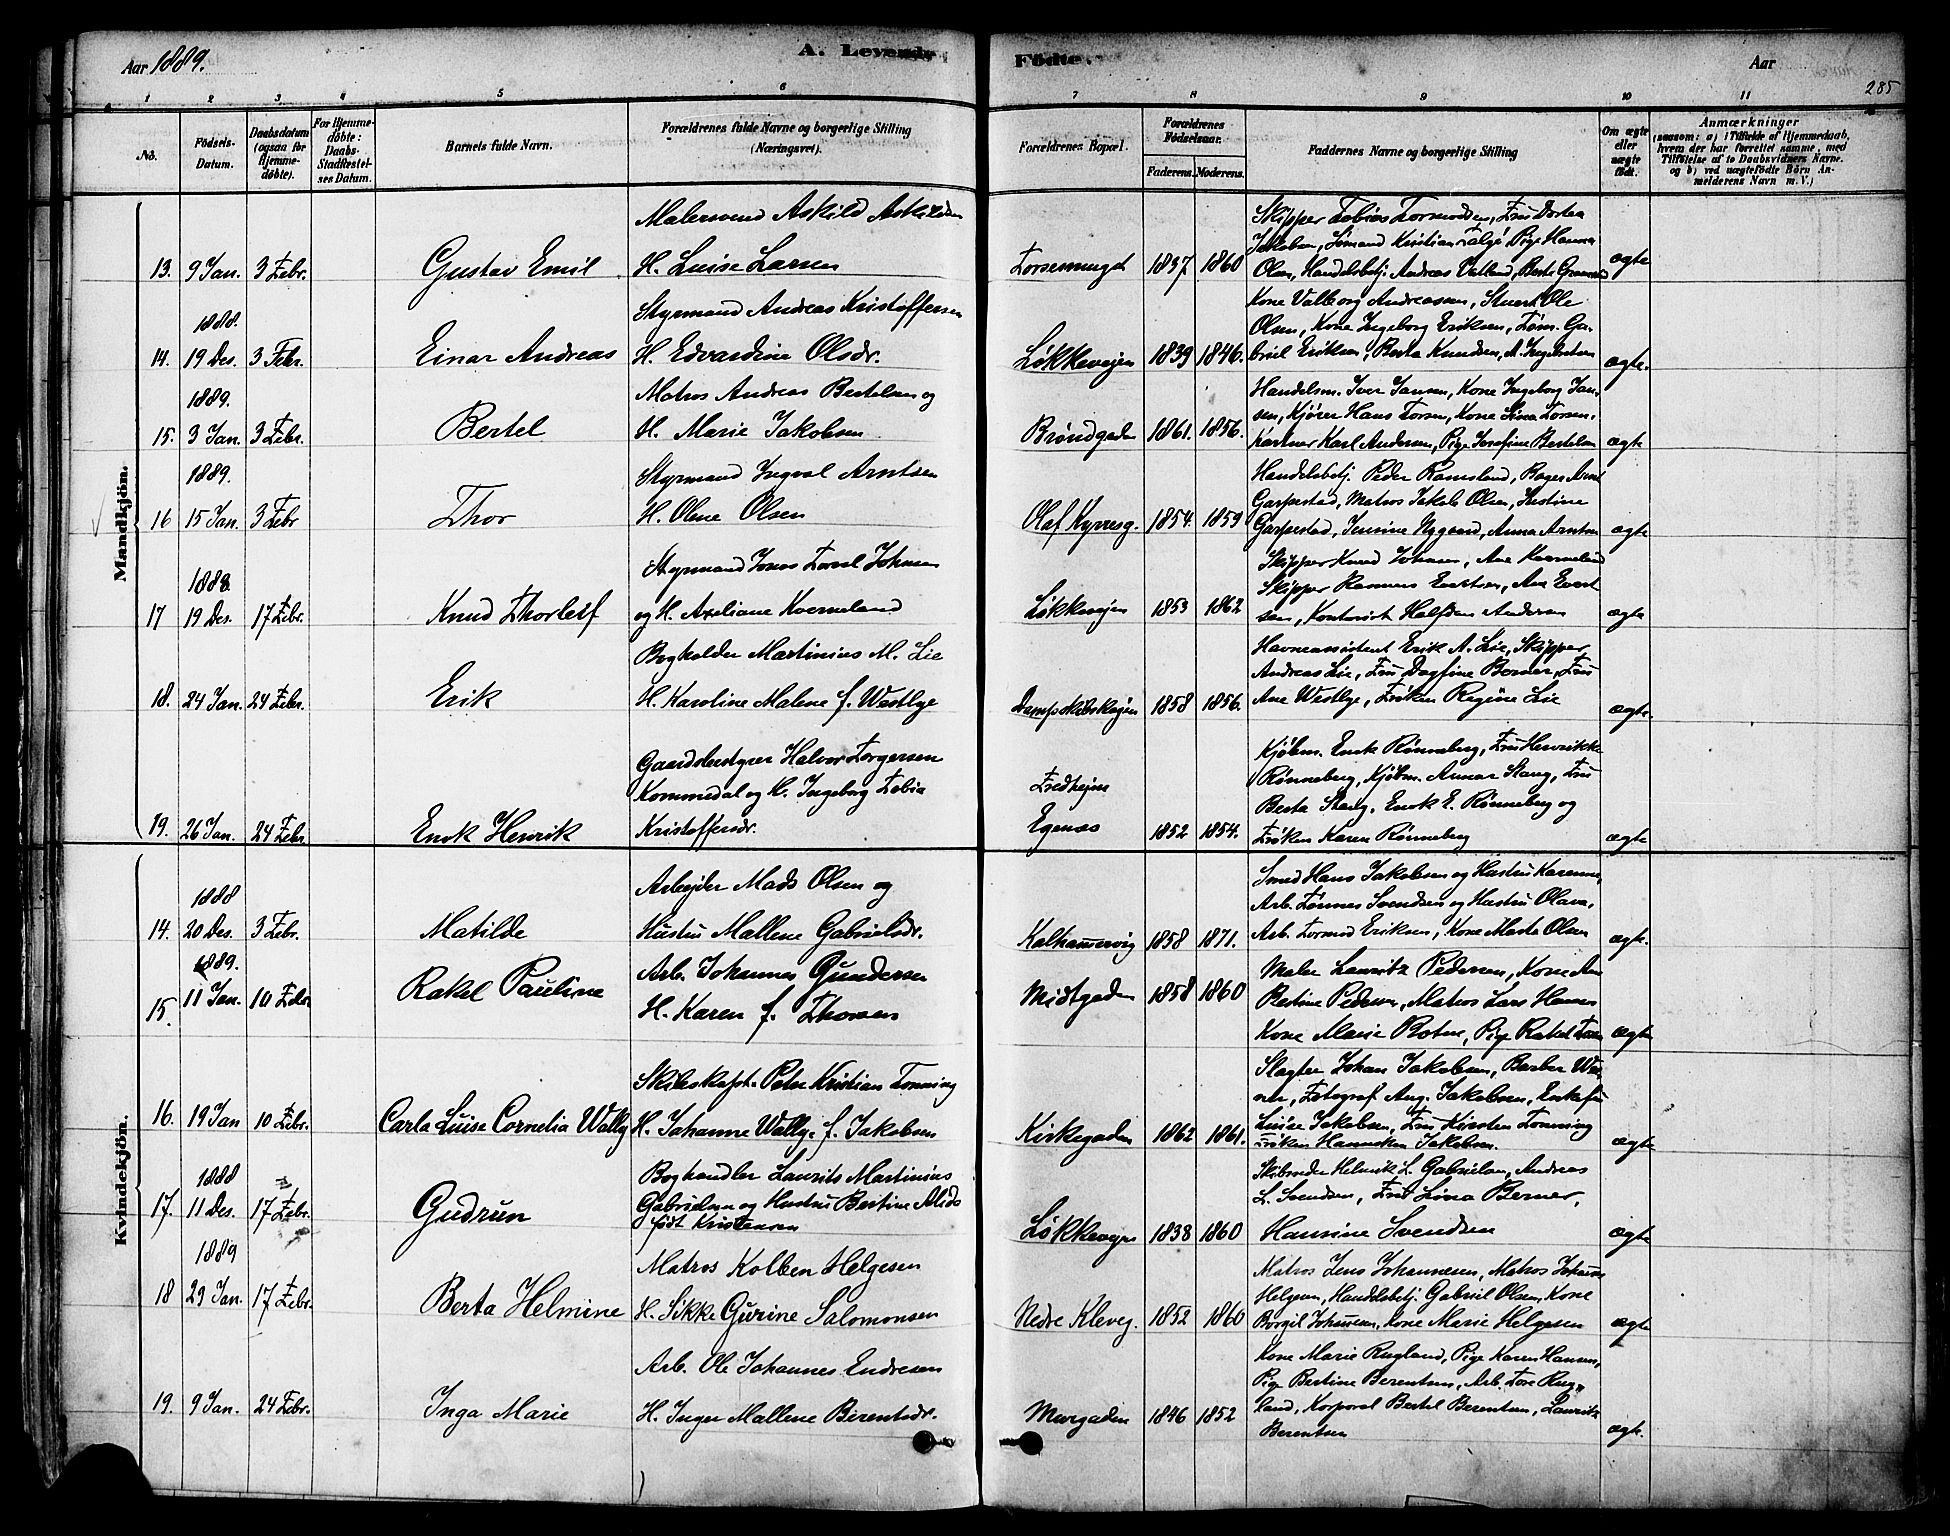 Aar 1889.
A. Levende
Födte.
Aar
285
1 2 3 4 5 6 7 8 9 10 11
No.
Födsels-Datum.
Daabsdatum (ogsaa for Hjemme-döbte).
For Hjemme-döbte: Daabs-Stadfæstel-ses Datum.
Barnets fulde Navn.
Forældrenes fulde Navne og borgerlige Stilling (Næringsvei).
Forældrenes Bopæl.
Forældrenes Födselsaar.
Faderens. Moderens.
Faddernes Navne og borgerlige Stilling
Om ægte eller uægte födt.
Anmærkninger
(saasom: a) i Tilfælde af Hjemmedaab, hvem der har forrettet samme, med Tilföielse af to Daabsvidners Navne. og b) ved uægtefödte Börn An-melderens Navn m. V.)
Mandkjön.
Malersvend Askild Askildsen
Skipper Tobias Tormodsen, Fru Dortea
Jakobsen, Sömand Kristian Talgö Pige Hanna
13. 9 Jan. 3 Febr. Gustav Emil H. Luise Larsen 1837 1860 Olsen, Handelsbetj. Andreas Vatland, Berte ægte
Styrmand Andreas Kristoffersen
Kone Valborg Andreassen, Stuert Ole
1888.
Olsen, Kone Ingeborg Eriksen, Töm. Ga-
14. 19 Des. 3 Febr. Einar Andreas H. Edvardine Olsdr. Løkkeveien 1839 1846. briel Eriksen, Berta Knudsen, A. Ingebretsen ægte.
1889.
Matros Andreas Bertelsen og
Handelsm. Iver Jansen, Kone Ingeborg Jan-
sen, Kjører Hans Torsen, Kone Sina Torsen.
15. 3 Jan. 3 Febr. Bertel H. Marie Jakobsen Brøndgaden 1861. 1856. Gartner Karl Andersen, Pige Josefine Bertelsen ægte
1889.
Styrmand Ingval Arntsen
Handelsbetj. Peder Ramsland, Bager
Garpestad, Matros Jakob Olsen, Justine
16 15 Jan. 3 Febr Thor H. Olene Olsen Olaf Kyrresg. 1854. 1859 Garpestad, Jensine Nygaard, Anna Arntsen ægte
Styrmand Jonas Torval Johnsen
Skipper Knud Johnsen, Ane Kverneland
1888
Skipper Rasmus Evertsen, Ane Evert
17 19 Des. 17 Febr. Knud Thorleif og H. Axeliane Kverneland Løkkeveien 1853 1862 sen, Kontorist Halfdan Andersen ægte
Bogholder Martinius M. Lie
Havneassistent Erik A. Lie, Skipper
Andreas Lie, Fru Dagfine Berner, Fru
18. 24 Jan. 24 Febr. Erik H. Karoline Malene f. Westbye Dampskibskajen 1858 1856. Ane Westbye, Frøken Regine Lie ægte.
Gaardsbestyrer Halvor Torgersen
Kommedal og H. Ingeborg Tobia
Kjøbm. Enok Rønneberg, Fru Henrikke
Rønneberg, Kjøbm. Annar Stang, Fru
Fredheim
Berta Stang, Enok E. Rønneberg og
19. 26 Jan. 24 Febr. Enok Henrik Kristoffersdr. Egenæs 1852 1854. Frøken Karen Rønneberg ægte
Kvindekjön.
1888
Arbejder Mads Olsen og
Smed Hans Jakobsen og Hustru Karenne,
Arb. Tønnes Svendsen og Hustru Olava,
14. 20 Des. 3 Febr. Matilde Hustru Mallene Gabrielsdr. Kalhammervig 1858 1871. Arb. Tormod Eriksen, Kone Marta Olsen ægte.
1889.
Arb. Johannes Gundersen
Maler Lauritz Pedersen, Kone Ane
15. 11 Jan. 10 Febr Rakel Pauline H. Karen f. Thorsen Midtgaden 1858 1860 Bertine Pedersen, Matros Lars Hansen
Kone Marie Botne, Pige Rakel ægte
Skibskapt. Peter Kristian Tonning
Slagter Johan Jakobsen, Barber Wer-
ner, Fotograf Aug. Jakobsen, Enkefru
16. 19 Jan 10 Febr. Carla Luise Cornelia Wally H. Johanne Wally f. Jakobsen Kirkegaden 1862 1861. Luise Jakobsen, Fru Kirsten Tonning
Frøken Hanneken Jakobsen. ægte
1888
Boghandler Laurits Martinius
Gabrielsen og Hustru Bertine Alida
Skibsreder Helmik L. Gabrielsen, Andreas
L. Svendsen, Fru Lina Berner,
17. 11 Des. 17 Febr. Gudrun født Kristensen Løkkevejen 1838 1860 Hansine Svendsen ægte
1889
Matros Kolben Helgesen
Matros Jens Johannesen, Matros Johan
Helgesen, Handelsbetj. Gabriel Olsen, Kone
18 23 Jan. 17 Febr. Berta Helmine H. Sikke Gurine Salomonsen Nedre Kleveg. 1852 1860 Borgil Johannesen, Kone Marie Helgesen ægte
Arb. Ole Johannes Endresen
Kone Marie Rugland, Pige Karen Hansen,
Pige Bertine Berentsen, Arb. Tore Rug-
19. 9 Jan. 24 Febr. Inga Marie H. Inger Mallene Berentsdr. Murgaden 1846 1852 land, Korporal Bertel Berentsen, Lauritz
Berentsen ægte.